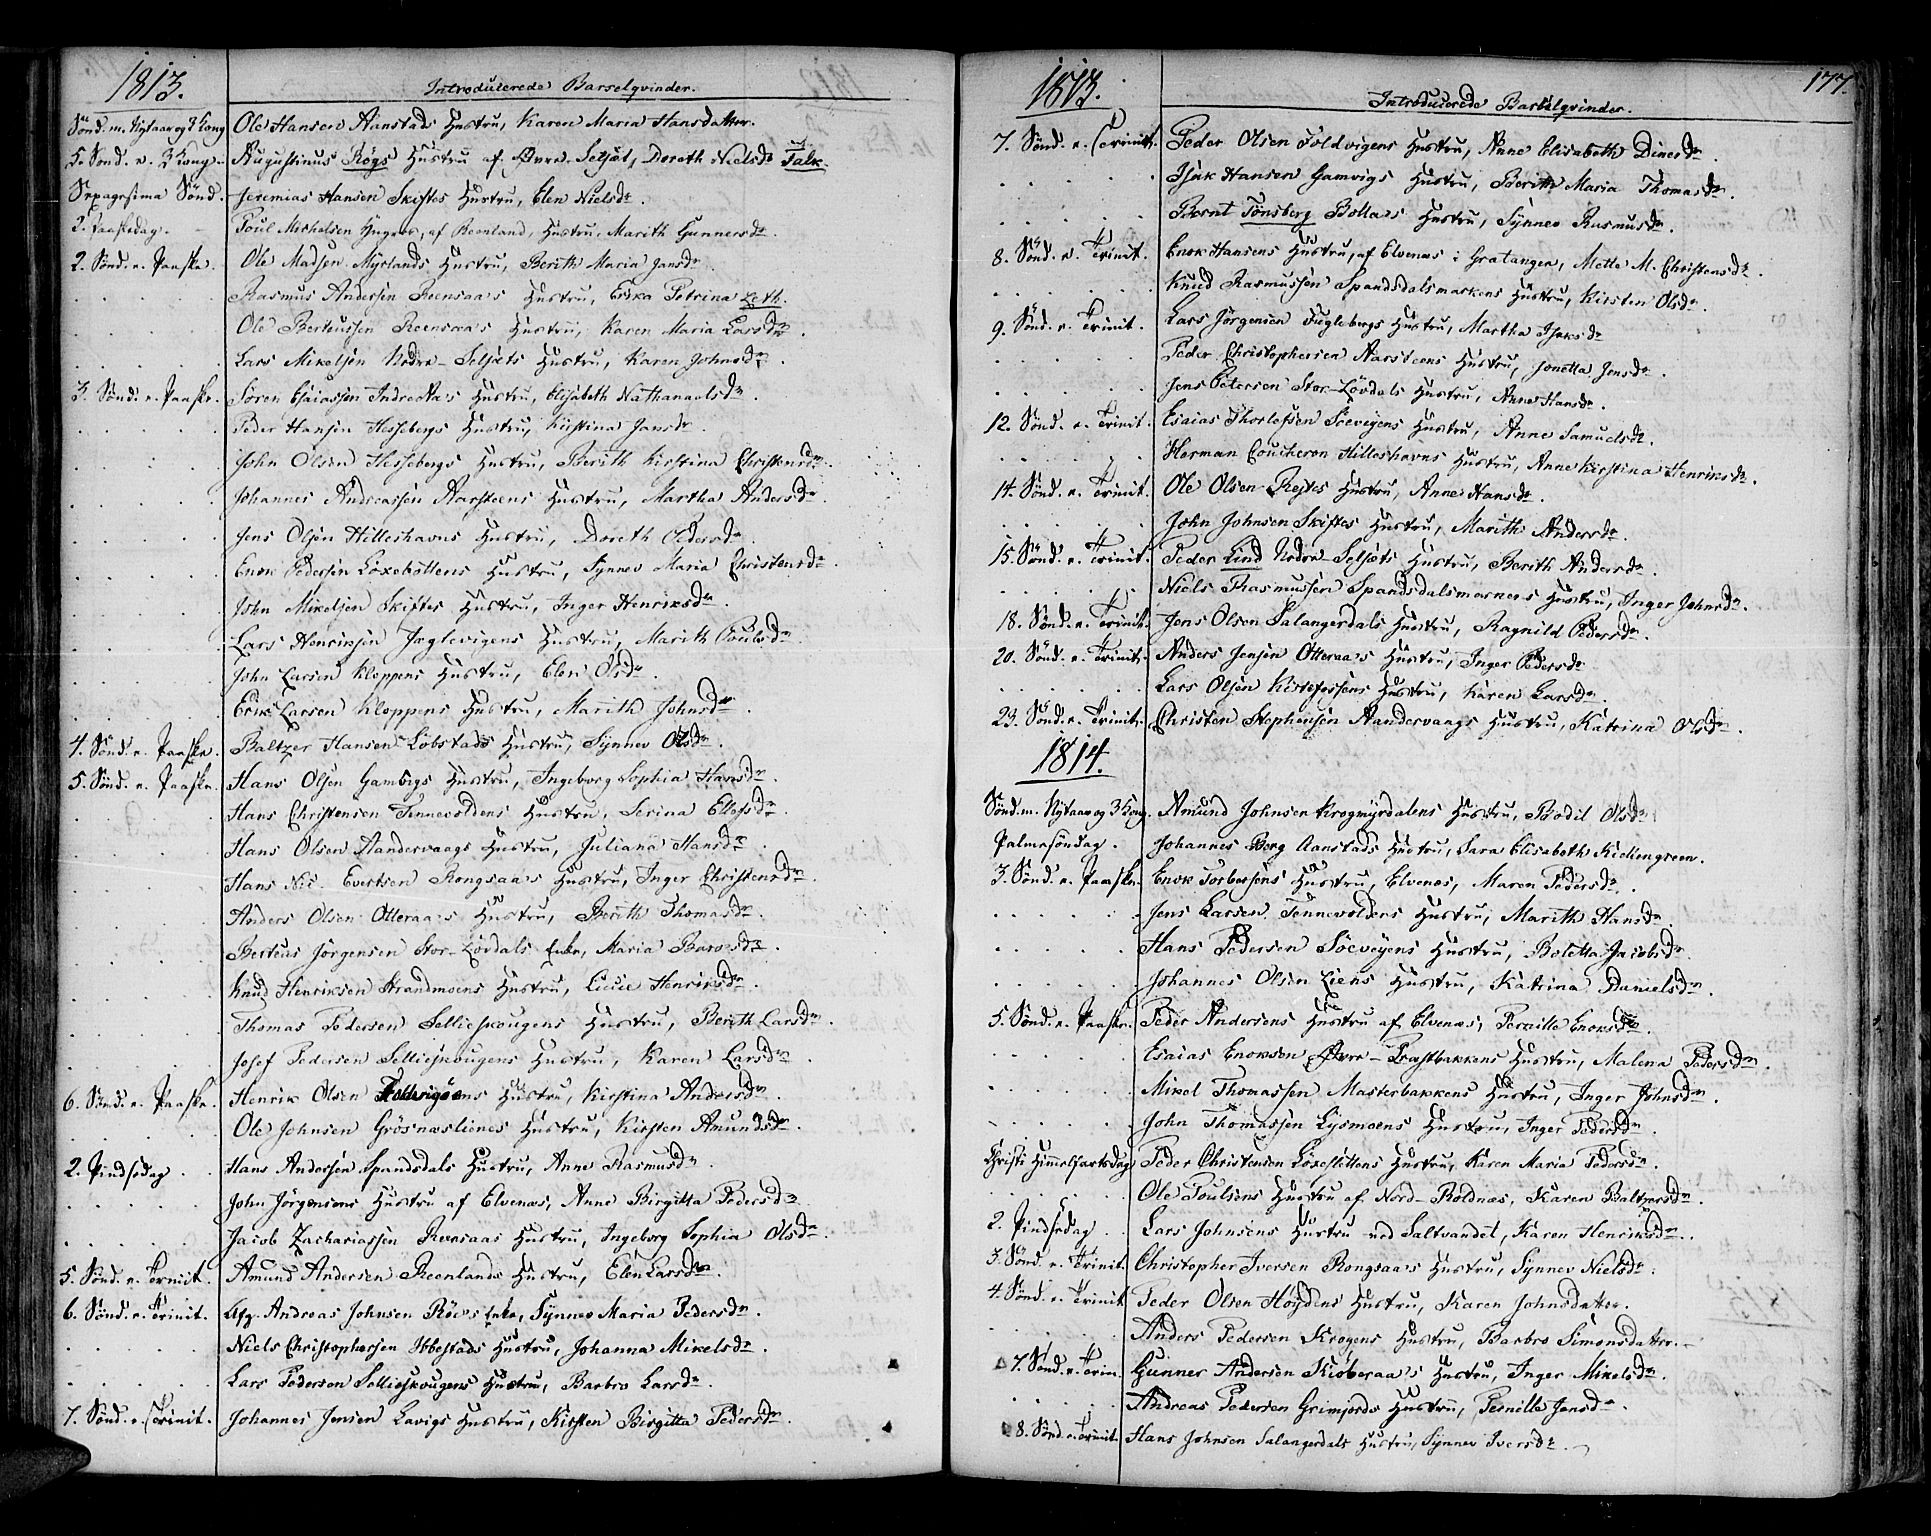 1813.
Introducerede Barselqvinder.
Sönd. m. Nytaar og 3 Kong Ole Hansen Aanstads Hustru, Karen Maria Hansdatter.
5. Sönd. e. 3 Kong. Augustinus Rögs Hustru af Øvre-Seljæt, Doreth Nielsdr Falk.
Sexagesima Sönd. Jeremias Hansen Skiftes Hustru, Elen Nielsdr.
2. Paaskedag. Poul Michelsen af Reenland, Hustru, Marith Gunnersdr.
2. Sönd. e. Paaske. Ole Madsen Myrlands Hustru, Berith Maria Jansdr
Rasmus Andersen Reensaa's Hustru, Erika Petrina Leth.
Ole Berteussen Reensaa's Hustru, Karen Maria Larsdr.
Lars Mikelsen Nedre-Seljæts Hustru, Karen Johnsdr.
3. Sönd. e. Paaske. Sören Esaiassen Indre Aa's Hustru, Elisabeth Nathanaelsdr.
Peder Hansen Hessebergs Hustru, Kirstina Jansdr.
John Olsen Hessebergs Hustru, Berith Kirstina Christensdr.
Johannes Andreassen Aarsteens Hustru, Martha Andersdr.
Jens Olsen Hilleshavns Hustru, Doreth Pedersdr.
Enok Pedersen Löxebottens Hustru, Synnev Maria Christensdr.
John Mikelsen Skiftes Hustru, Inger Henriksdr.
Lars Henriksen Jeglevigens Hustru, Marith Poulsdr.
John Larsen Kloppens Hustru, Elen Olsdr.
Erik Larsen Kloppens Hustru, Marith Johnsdr.
4. Sönd. e. Paaske. Baltzer Hansen Löbstads Hustru, Synnev Olsdr.
5. Sönd. e. Paaske. Hans Olsen Gamvigs Hustru, Ingeborg Sophia Hansdr.
Hans Christensen Tennevoldens Hustru, Serina Ellefsdr.
Hans Olsen Aandervaags Hustru, Juliana Hansdr.
Hans Nic. Evertsen Rongsaa's Hustru, Inger Christensdr.
Anders Olsen Otteraa's Hustru, Berith Thomasdr.
Berteus Jörgensen Stor-Lövdals Enke, Maria
Knud Henriksen Strandmoens Hustru, Lucie Henriksdr.
Thomas Pedersen Sellieskougens Hustru, Berith Larsdr.
Josef Pedersen Sellieskougens Hustru, Karen Larsdr.
6. Sönd. e. Paaske. Henrik Olsen Hustru, Kirstina Andersdr.
Ole Johnsen Grösnæslienes Hustru, Kirsten Amundsdr.
2. Pindsedag. Hans Andersen Spandsdals Hustru, Anne Rasmusdr.
John Jörgensens Hustru af Elvenæs, Anne Birgitta Pedersdr.
Jacob Zachariassen Reensaas Hustru, Ingeborg Sophia Olsdr.
5. Sönd. e. Trinit. Amund Andersen Reenlands Hustru, Elen Larsdr.
6. Sönd. e. Trinit. Afg. Andreas Johnsen Röe's Enke, Synnev Maria Pedersdr.
Niels Christophersen Ibbestads Hustru, Johanna Mikelsdr.
Lars Pedersen Sellieskougens Hustru, Barbro Larsdr.
7. Sönd. e. Trinit. Johannes Jensen Lavigs Hustru, Kirsten Birgitta Pedersdr.
1813.
Introducerede Barselqvinder.
177
7. Sönd. e. Trinit. Peder Olsen Foldvigens Hustru, Anne Elisabeth Dinesdr.
Isak Hansen Gamvigs Hustru, Berith Maria Thomasdr.
Bernt Tönsberg Bolla's Hustru, Synnev Rasmusdr.
8. Sönd. e. Trinit. Enok Hansens Hustru, af Elvenæs i Gratangen, Mette M. Christensdr.
Knud Rasmussen Spandsdalsmarkens Hustru, Kirsten Olsdr.
9. Sönd. e. Trinit. Lars Jörgensen Fuglebergs Hustru, Martha Isaksdr
Peder Christophersen Aarsteens Hustru, Jonetta Jensdr.
Jens Petersen Stor-Lövdals Hustru, Anne Hansdr.
12. Sönd. e. Trinit. Esaias Thorlefsen Söevejens Hustru, Anne Samuelsdr.
Herman Coucheron Hilleshavns Hustru, Anne Kirstina Henriksdr.
14. Sönd. e. Trinit. Ole Olsen Hustru, Anne Hansdr.
John Johnsen Skiftes Hustru, Marith Andersdr.
15. Sönd. e. Trinit. Peder Lind Nedre-Seljæts Hustru, Berith Andersdr.
Niels Rasmussen Spandsdalsmarkens Hustru, Inger Johnsdr.
18. Sönd. e. Trinit. Jens Olsen Salangerdals Hustru, Ragnild Pedersdr.
20. Sönd. e. Trinit. Anders Jensen Otteraa's Hustru, Inger Pedersdr
Lars Olsen Kistefossens Hustru, Karen Larsdr.
23. Sönd. e. Trinit. Christen Stephensen Aandervaags Hustru, Katrina Olsdr.
1814.
Sönd. m. Nytaar og 3 Kong. Amund Johnsen Krogmyrdalens Hustru, Bodil Olsdr
Palmesöndag. Johannes Berg Aanstads Hustru, Sara Elisabeth Kiellengreen.
3. Sönd. e. Paaske. Enok Torbersens Hustru, Elvenes, Maren Pedersdr.
Jens Larsen Tennevoldens Hustru, Marith Hansdr.
Hans Pedersen Söevejens Hustru, Boletta Jacobsdr.
Johannes Olsen Liens Hustru, Katrina Danielsdr.
5. Sönd. e. Paaske. Peder Andersens Hustru af Elvenæs, Pernille Enoksdr.
Esaias Enoksen Øvre-Præstbakkens Hustru, Malena Pedersdr.
Mikel Thomassen Masterbakkens Hustru, Inger Johnsdr.
John Thomassen Lysmoens Hustru, Inger Pedersdr.
Christi Himmelfartsdag Peder Christensen Löxeslettens Hustru, Karen Maria Pedersdr.
Ole Poulsens Hustru af Nord-Roldnæs, Karen Baltzersdr.
2. Pindsedag Lars Johnsens Hustru ved Saltvandet, Karen Henriksdr.
3. Sönd. e. Trinit. Christopher Iversen Rongsaa's Hustru, Synnev Nielsdr.
4. Sönd. e. Trinit Peder Olsen Höydens Hustru, Karen Johnsdatter.
Anders Pedersen Krogens Hustru, Barbro Simonsdatter.
7. Sönd. e. Trin. Gunner Andersen Kioberaa's Hustru, Inger Mikelsdr.
Andreas Pedersen Grimjords Hustru, Pernille Jensdr.
8. Sönd. e. Trinit. Hans Johnsen Salangerdals Hustru, Synnev Iversdr.